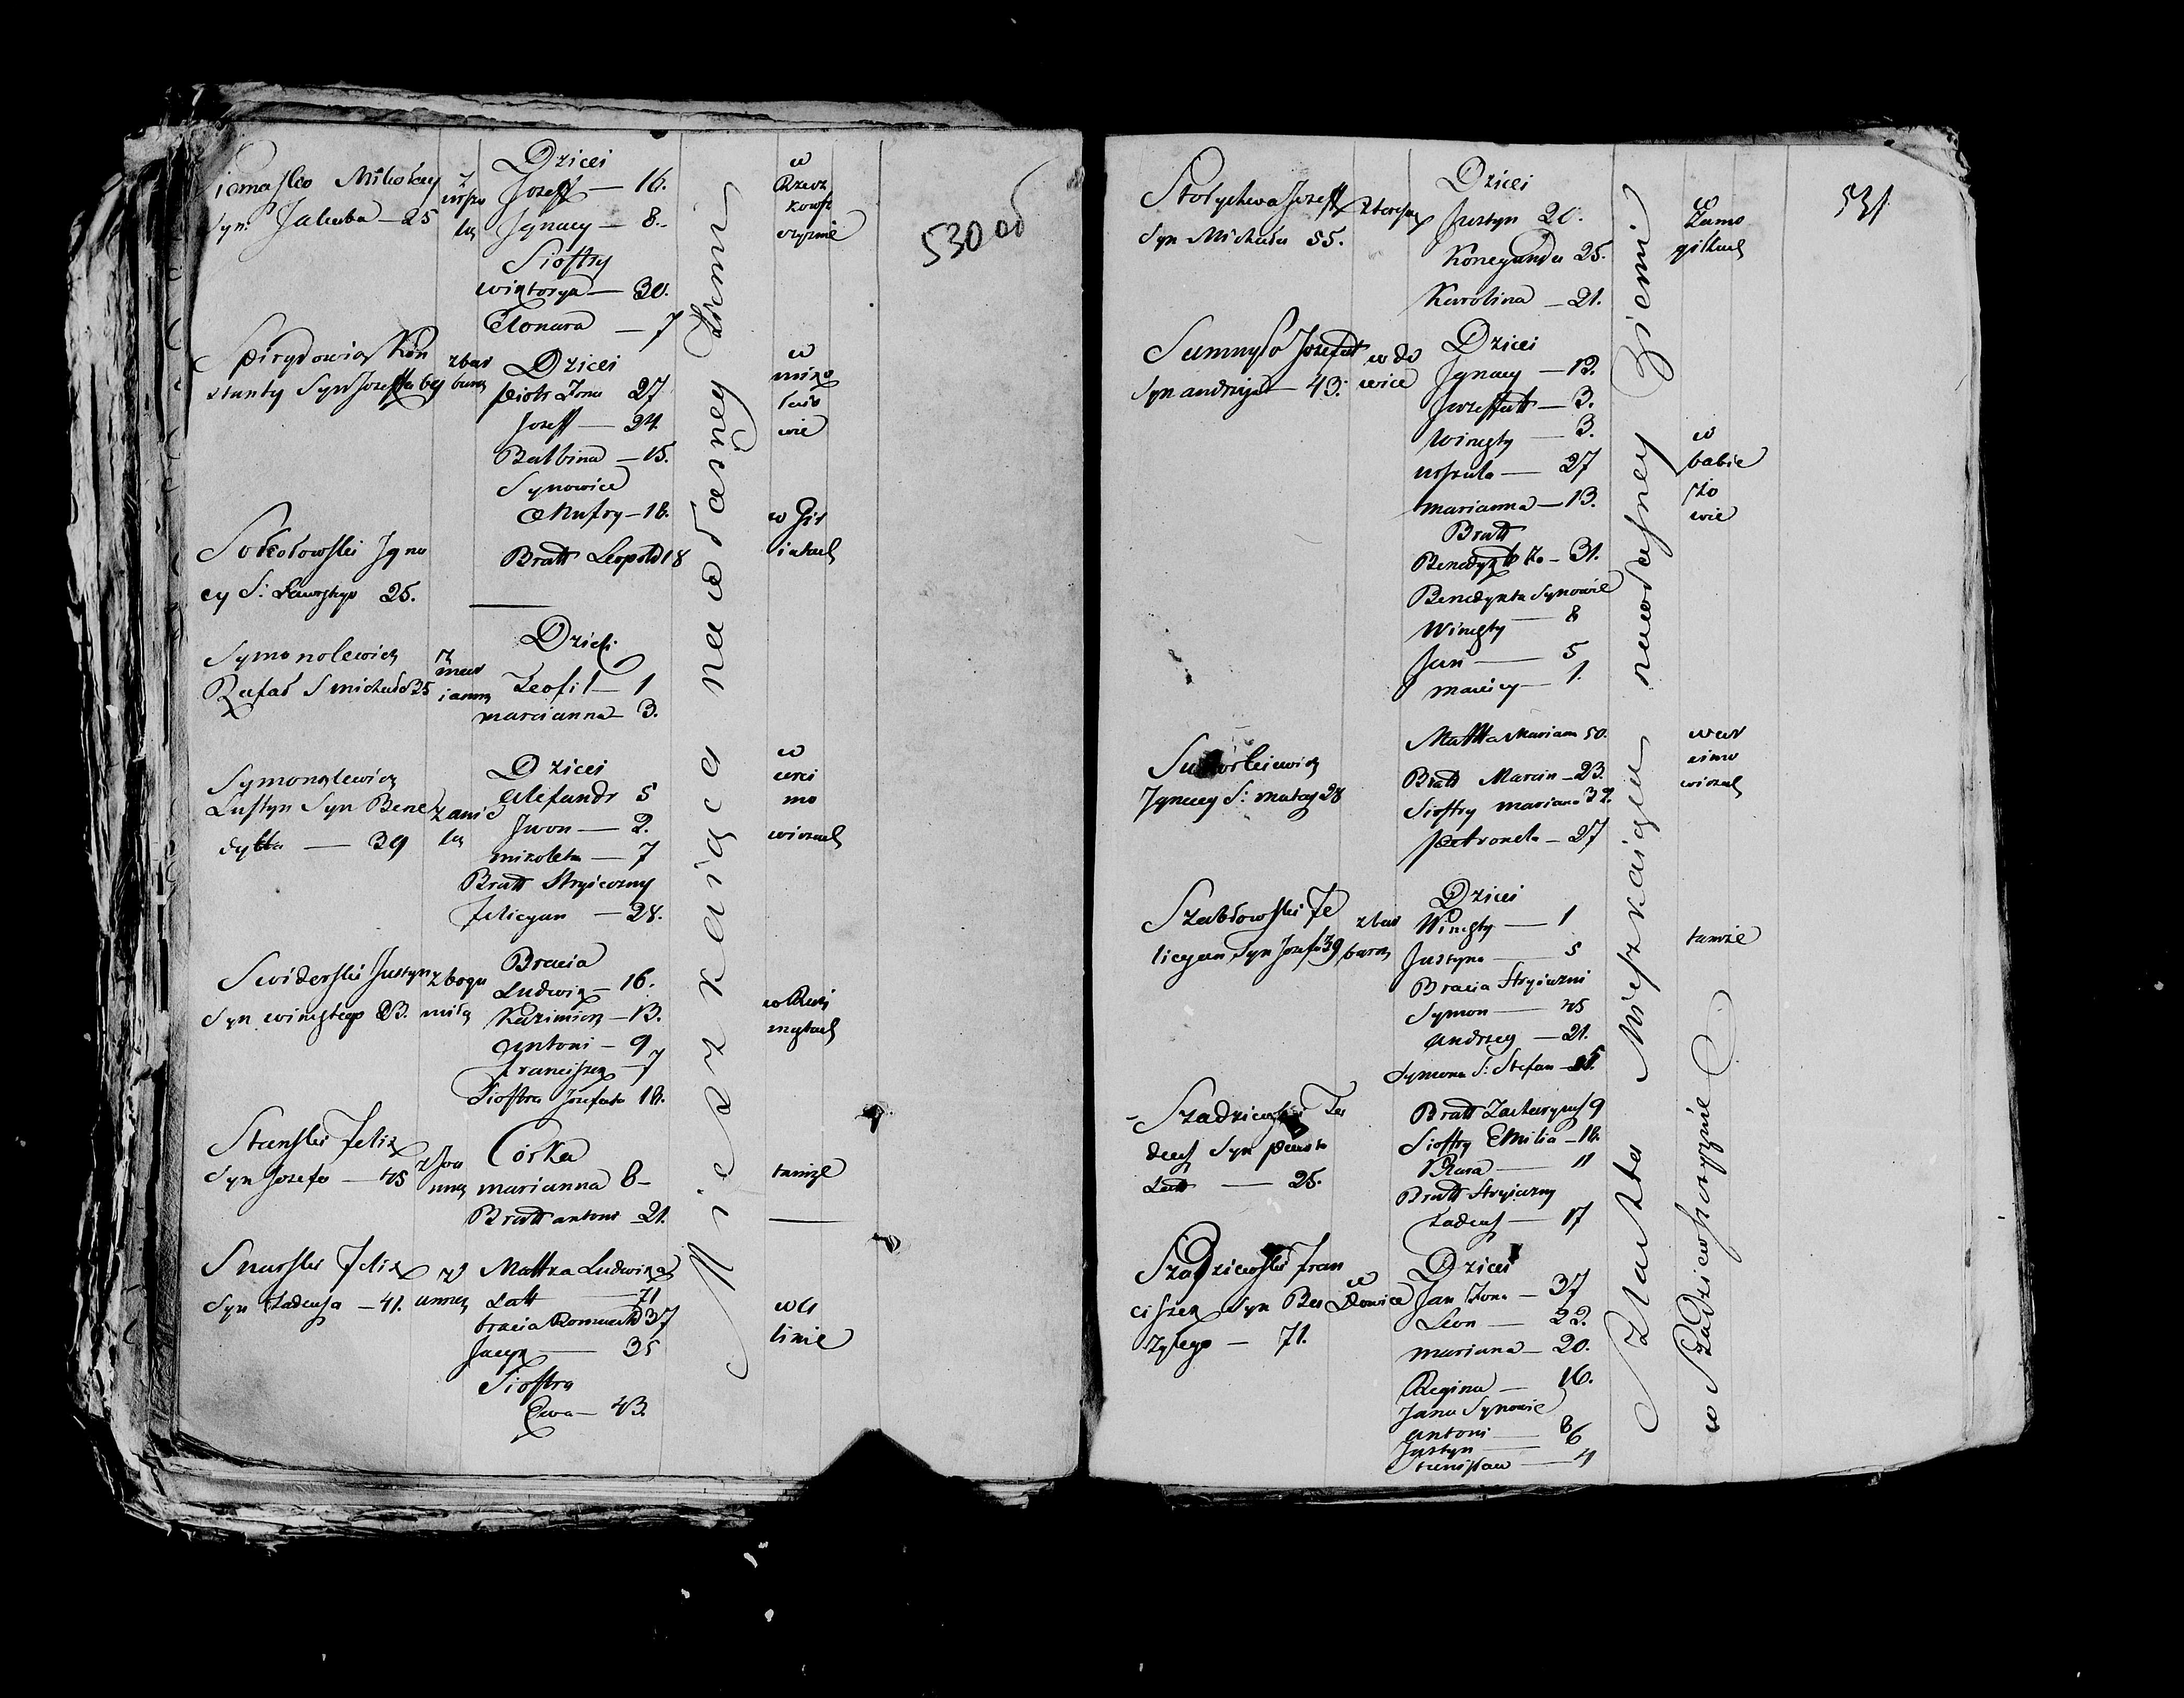 Siemaszko Mikołay
Syn Jakuba — 25
z
urszu
lą
Dzieci
Jozeff — 16.
Jgnacy — 8.
Siostry
wiktorya — 30.
Elonara — 7
w
Rzecz
kowsz
czyznie
530 об
Spirydowicz Kon
stanty Syn Jozeffa 69
zbar
barą
Dzieci
piotr Żona 27
Jozeff — 24
Balbina — 15.
Synowice
Onufry — 18.
w
miko
łaio
wie
Sokołowski Jgna
cy S: Ławrskyo 25.
Bratt Leopold 18
w Gir
iałach
Symonolewicz
Rafał S michała 25
z
mar
ianną
Dzieci
Teofil — 1
marcianna — 3.
Symonolewicz
Lustyn Syn Bene
dykta — 39
z anie
lą
Dzieci
Alexandr 5
Jwon — 2.
mikoleta — 7
Bratt Stryieczny
felicyan — 28.
w
cerei
mo
wiczach
Swiderski Justyn
Syn wincętego 23.
z bogu
miłą
Bracia
Ludwik — 16.
Kazimierz — 13.
Antoni — 9
franciszek — 7
Siostra Jozefata 18.
w Rusi
nystach
Stanski felix
Syn Jozefa — 45
z Joa
nną
Córka
marianna 8 —
Bratt antoni — 21.
tamże
Snarski felix
Syn tadeusza — 41.
z
anną
Mattka Ludwika
Latt — 71
bracia Romuald 37
Jacyk — 35
Siostra
Ewa — 43.
w U
linie
Mieszkaiąca na właśney ziemi
Stołychwa Jozeff
Syn Michała 55.
z teresą
Dzieci
Justyn 20.
Konegunda 25.
Karolina — 21.
w
Zamo
giłkach
531
Sumnyło Jozefat
Syn andrzeja — 43.
w do
wiec
Dzieci
Jgnacy — 12.
Jozeffatt — 3.
Wincęty — 3.
urszula — 27
marianna — 13.
Bratt
Benedykt Żo — 31.
Benedykta Synowie
Wincęty — 8
Jan — 5
maciey — 1.
w
babie
szo
wie
Jgnacy S: mateja 28
Mattka Mariann 50.
Bratt Marcin — 23.
Siostry marianna 32.
petronela — 27
w cer
eimo
wiczach
Szabłowski Fe
licyan Syn Jozefa 39
zbar
barą
Dzieci
Wincęty — 1
Justyna — 5
Bracia Stryieczni
Symon — 45
Andrzey — 21.
Symona S: Stefan —
tamże
Szadziewski Ta
deusz Syn pawła
Latt — 25.
Bratt Zacharyasz 9
Siostry Emilia — 18.
Klara — 11
Bratt Stryieczny
tadeusz — 17
Szadziewski fran
ciszek Syn Ba
zylego — 71.
w
dowiec
Dzieci
Jan Żona — 37
Leon — 22.
mariana — 20.
Regina — 16.
Jana Synowie
antoni — 8
Justyn — 6
Stanisław — 4
Szlachta Mieszkaiąca na właśney Ziemi
w Szadziewszczyznie